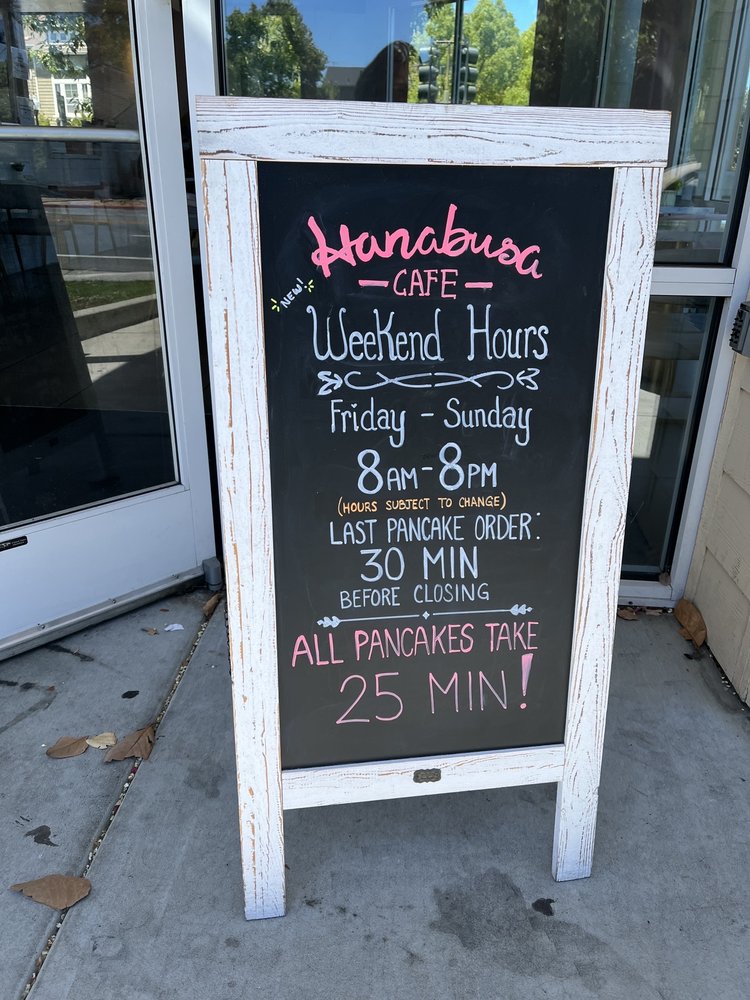 Hanabusa
— CAFE —
NEW!
Weekend Hours
Friday - Sunday
8AM - 8PM
(HOURS SUBJECT TO CHANGE)
LAST PANCAKE ORDER:
30 MIN
BEFORE CLOSING
ALL PANCAKES TAKE
25 MIN!